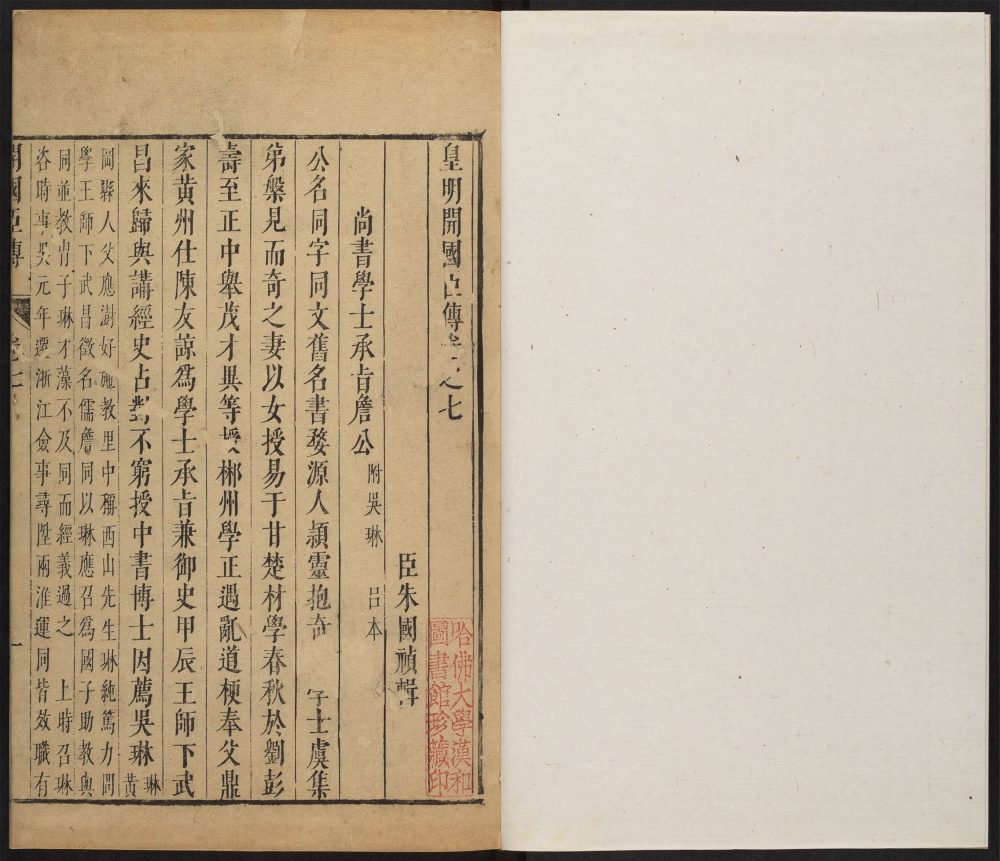 皇明開國臣傳卷之七
臣朱國禎輯
尚書學士承旨詹公附吳琳 呂本
公名同字同文舊名書婺源人穎靈抱奇 學士虞集
弟槃見而奇之妻以女授易于甘楚材學春秋於劉彭
壽至正中舉茂才異等授郴州學正遇亂道梗奉父鼎
家黃州仕陳友諒爲學士承旨兼御史甲辰王師下武
昌來歸與講經史占對不窮授中書博士因薦吳琳琳黃
岡縣人父應澍好施教里中稱西山先生琳純篤力問
學王師下武昌徵名儒詹同以琳應召爲國子助教與
同並教冑子琳才藻不及同而經義過之 上時召琳
咨時事吳元年遷浙江僉事尋陞兩淮運同皆效職有
開國臣傳 卷之七 一
哈佛大學漢和
圖書館珍藏印